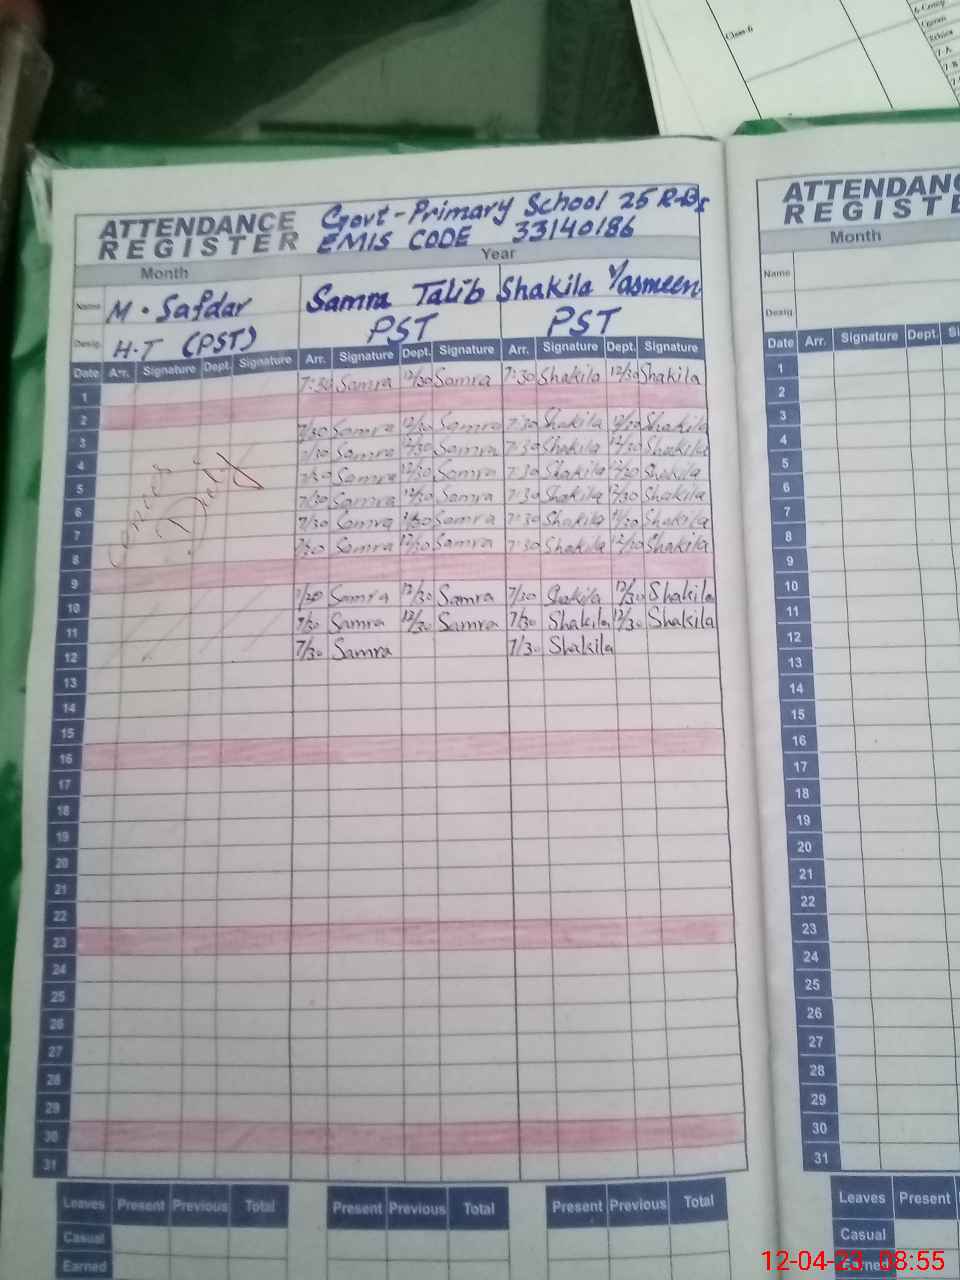 Class-6
6-Comp
7-A
7-B
ATTENDANCE REGISTER
Govt-Primary School 25 R-B
EMIS CODE 33140186
Month Year
Name M. Safdar Samra Talib Shakila Yasmeen
Desig. H.T (PST) PST PST
Date Arr. Signature Dept. Signature Arr. Signature Dept. Signature Arr. Signature Dept. Signature
1 7:30 Samra 12/30 Samra 7:30 Shakila 12/30 Shakila
2
3 7/30 Samra 12/30 Samra 7:30 Shakila 12/30 Shakila
4 7/30 Samra 12/30 Samra 7:30 Shakila 12/30 Shakila
5 7/30 Samra 12/30 Samra 7:30 Shakila 12/30 Shakila
6 7/30 Samra 12/30 Samra 7:30 Shakila 12/30 Shakila
7 7/30 Samra 12/30 Samra 7:30 Shakila 12/30 Shakila
8 7/30 Samra 12/30 Samra 7:30 Shakila 12/30 Shakila
Duty
9
10 7/30 Samra 12/30 Samra 7/30 Shakila 12/30 Shakila
11 7/30 Samra 12/30 Samra 7/30 Shakila 12/30 Shakila
12 7/30 Samra 7/30 Shakila
13
14
15
16
17
18
19
20
21
22
23
24
25
26
27
28
29
30
31
Leaves Present Previous Total Present Previous Total Present Previous Total
Casual
Earned
ATTENDANC
REGISTE
Month
Name
Desig.
Date Arr. Signature Dept. Si
1
2
3
4
5
6
7
8
9
10
11
12
13
14
15
16
17
18
19
20
21
22
23
24
25
26
27
28
29
30
31
Leaves Present
Casual
Earned
12-04-23 08:55